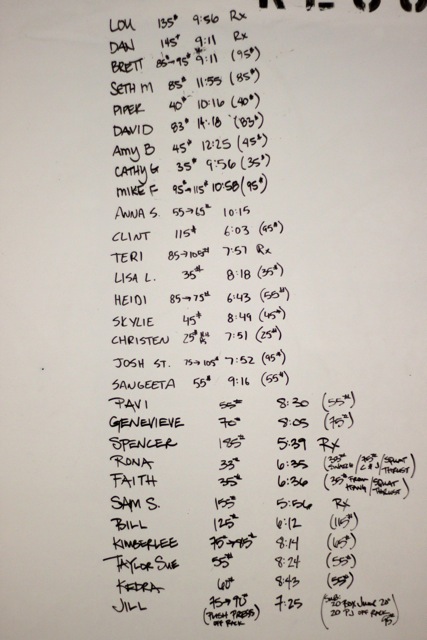 LOU 135# 9:56 Rx
DAN 145# 9:11 Rx
BRETT 85#→95# 9:11 (95#)
SETH M 85# 11:55 (85#)
PIPER 40# 10:16 (40#)
DAVID 83# 14:18 (83#)
Amy B 45# 12:25 (45#)
CATHY G 35# 9:56 (35#)
MIKE F 95#→115# 10:58 (95#)
ANNA S. 55→65# 10:15
CLINT 115# 6:03 (95#)
TERI 85→105# 7:57 Rx
LISA L. 35# 8:18 (35#)
HEIDI 85→75# 6:43 (55#)
SKYLIE 45# 8:49 (45#)
CHRISTEN 25# 7:51 (25#)
JOSH ST. 75→105# 7:52 (95#)
SANGEETA 55# 9:16 (55#)
PAVI 55# 8:30 (55#)
GENEVIEVE 70# 8:05 (75#)
SPENCER 185# 5:39 Rx
RONA 33# 6:35 (35# / 75# C&J / SQUAT THRUST)
FAITH 35# 6:36 (35# FRONT HANG / SQUAT THRUST)
SAM S. 155# 5:56 Rx
BILL 125# 6:12 (115#)
KIMBERLEE 75→85# 8:14 (65#)
TAYLOR SUE 55# 8:24 (55#)
KEDRA 60# 8:43 (55#)
JILL 75→90# 7:25 (SUB:
(PUSH PRESS) 20 BOX JUMP 20"
OFF RACK 20 PJ OFF RACK